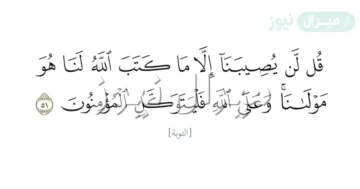 ميرال نيوز
قُل لَّن يُصِيبَنَآ إِلَّا مَا كَتَبَ ٱللَّهُ لَنَا هُوَ
مَوْلَىٰنَاۚ وَعَلَى ٱللَّهِ فَلْيَتَوَكَّلِ ٱلْمُؤْمِنُونَ ٥١
[التوبة]